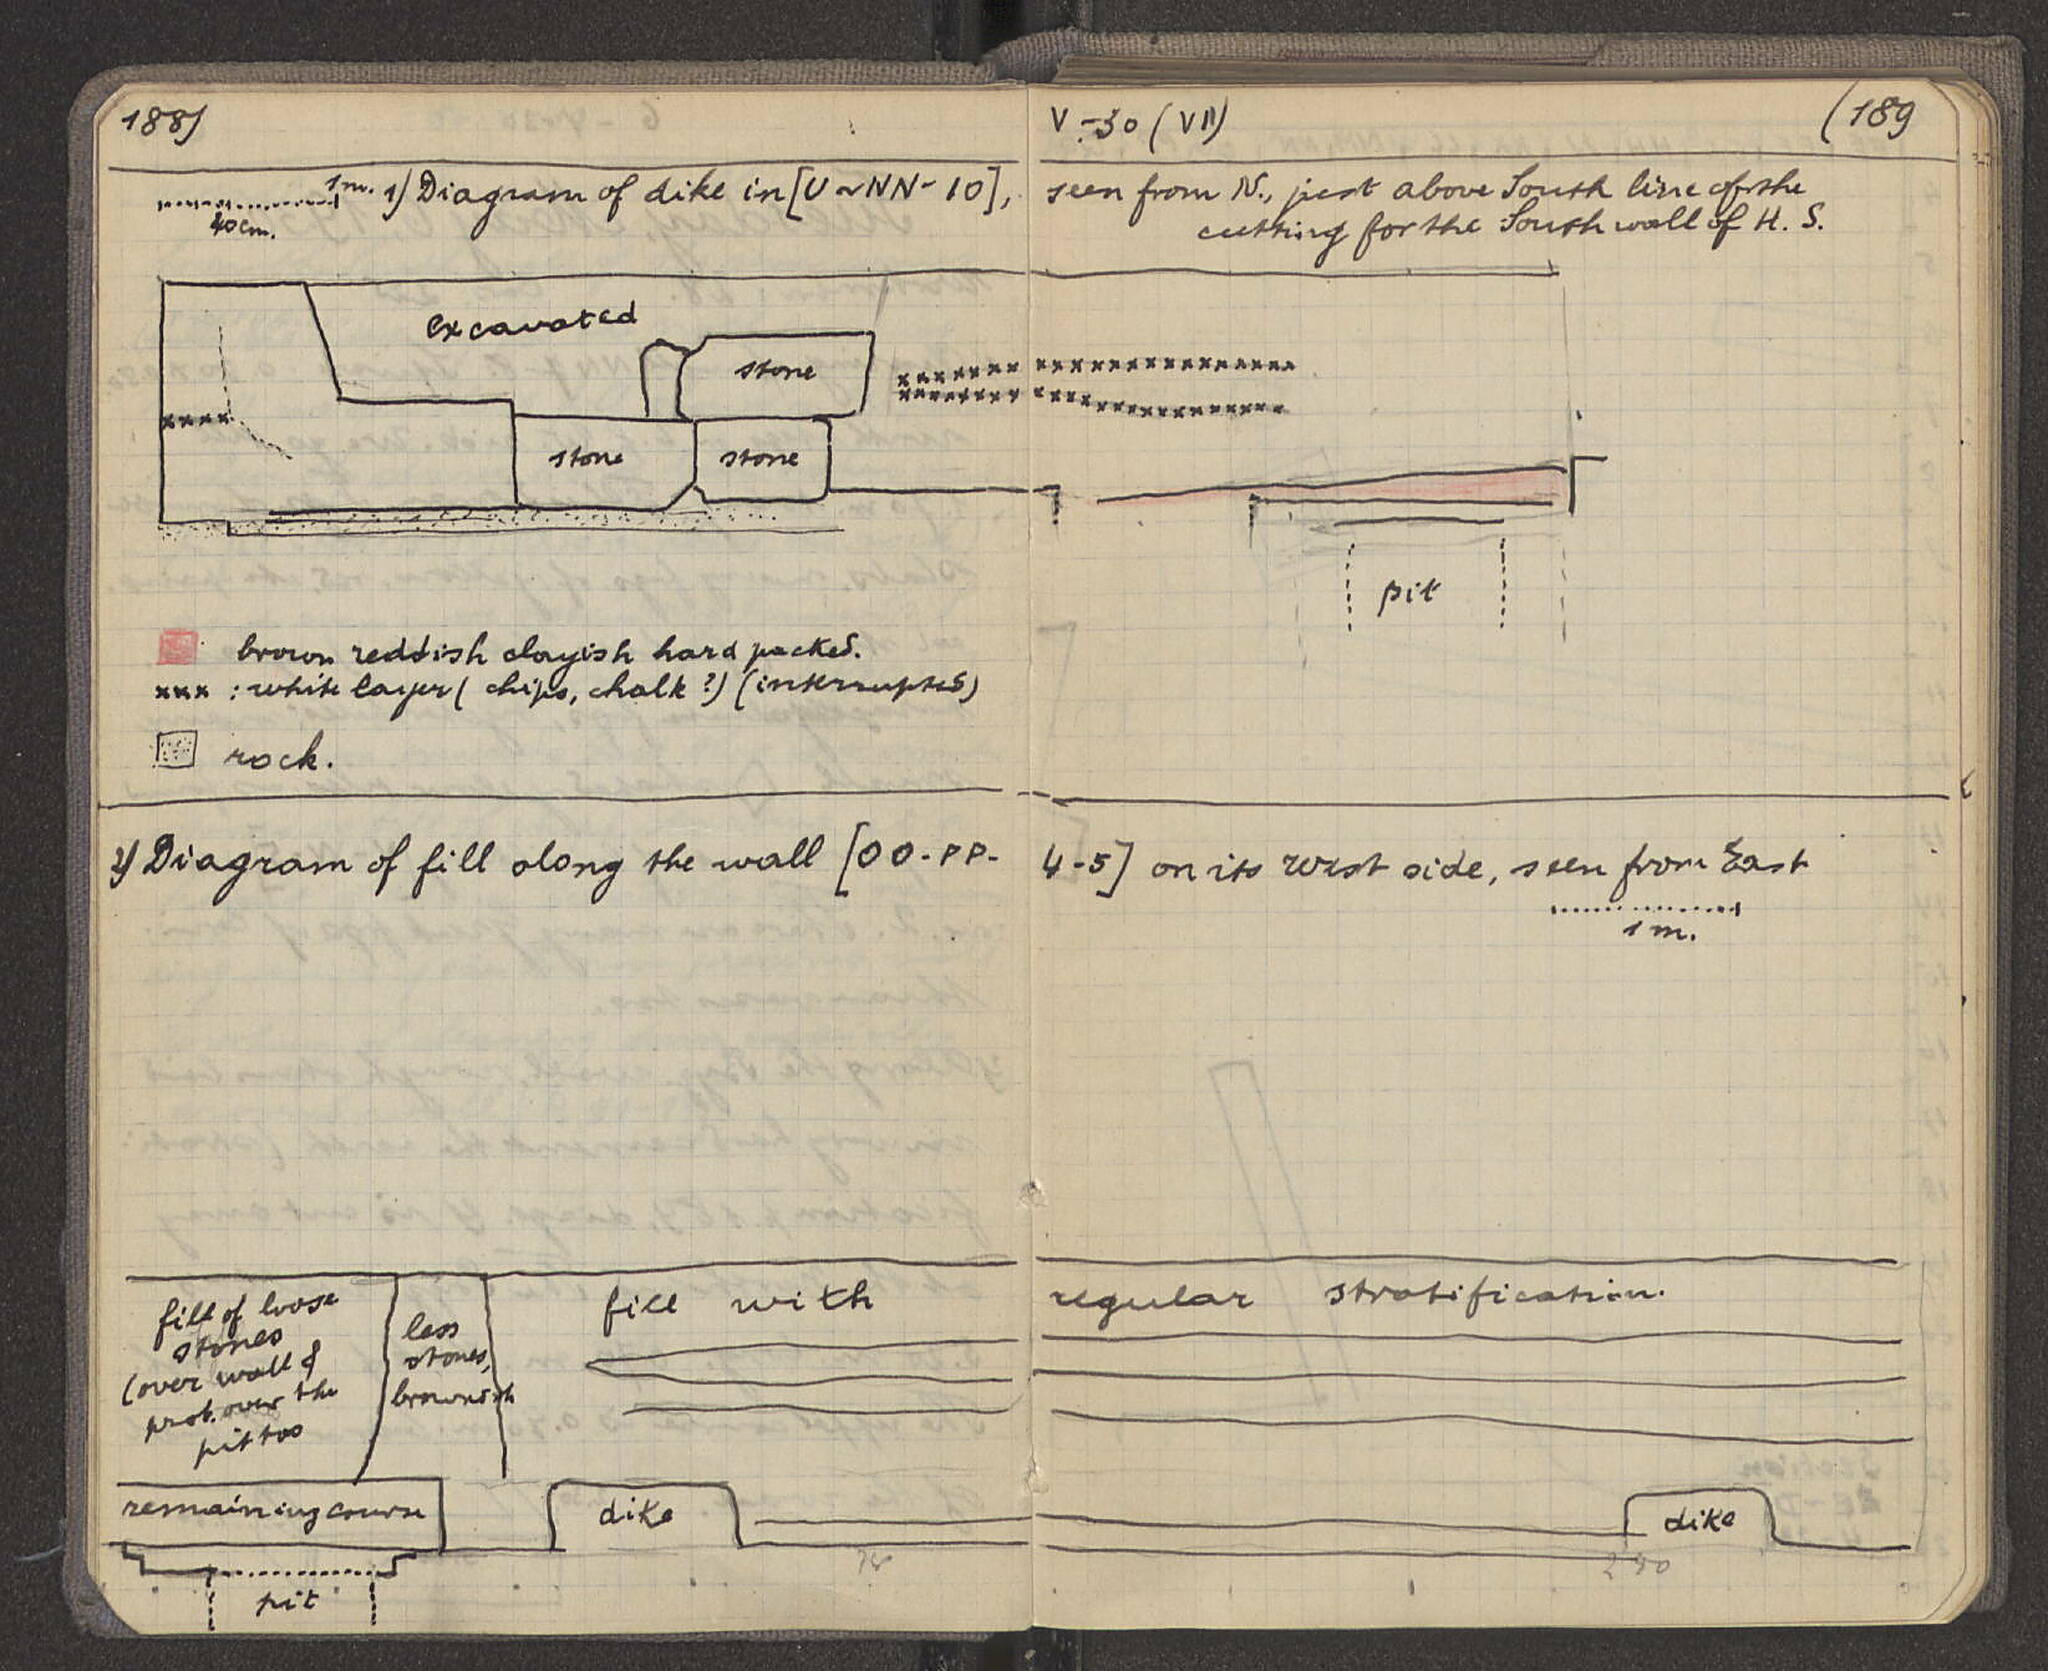 188)
V-30 (VII)
(189
1m.
40cm.
1) Diagram of dike in [U~NN-10], seen from N., just above South line of the
cutting for the South wall of H. S.
excavated
stone
stone
stone
pit
brown reddish clayish hard packed.
xxx : white layer (chips, chalk?) (interrupted)
rock.
2) Diagram of fill along the wall [OO-PP- 4-5] on its West side, seen from East
1 m.
fill of loose
stones
(over wall &
prob. over the
pit too
less
stones,
brownish
fill with regular stratification.
remaining course
dike
dike
pit